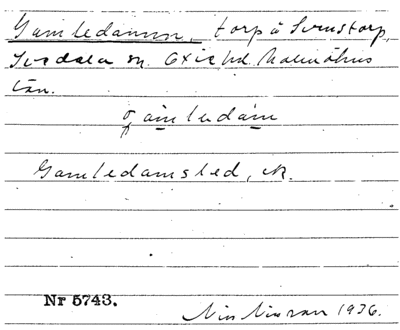 Gamledammen, torp å Sirustorp,
Svedala sn. Oxie hd. Malmöhus
län.
gamledam
Gamledamsled, ck.
Nr 5743.
Nils Nilsson 1936.